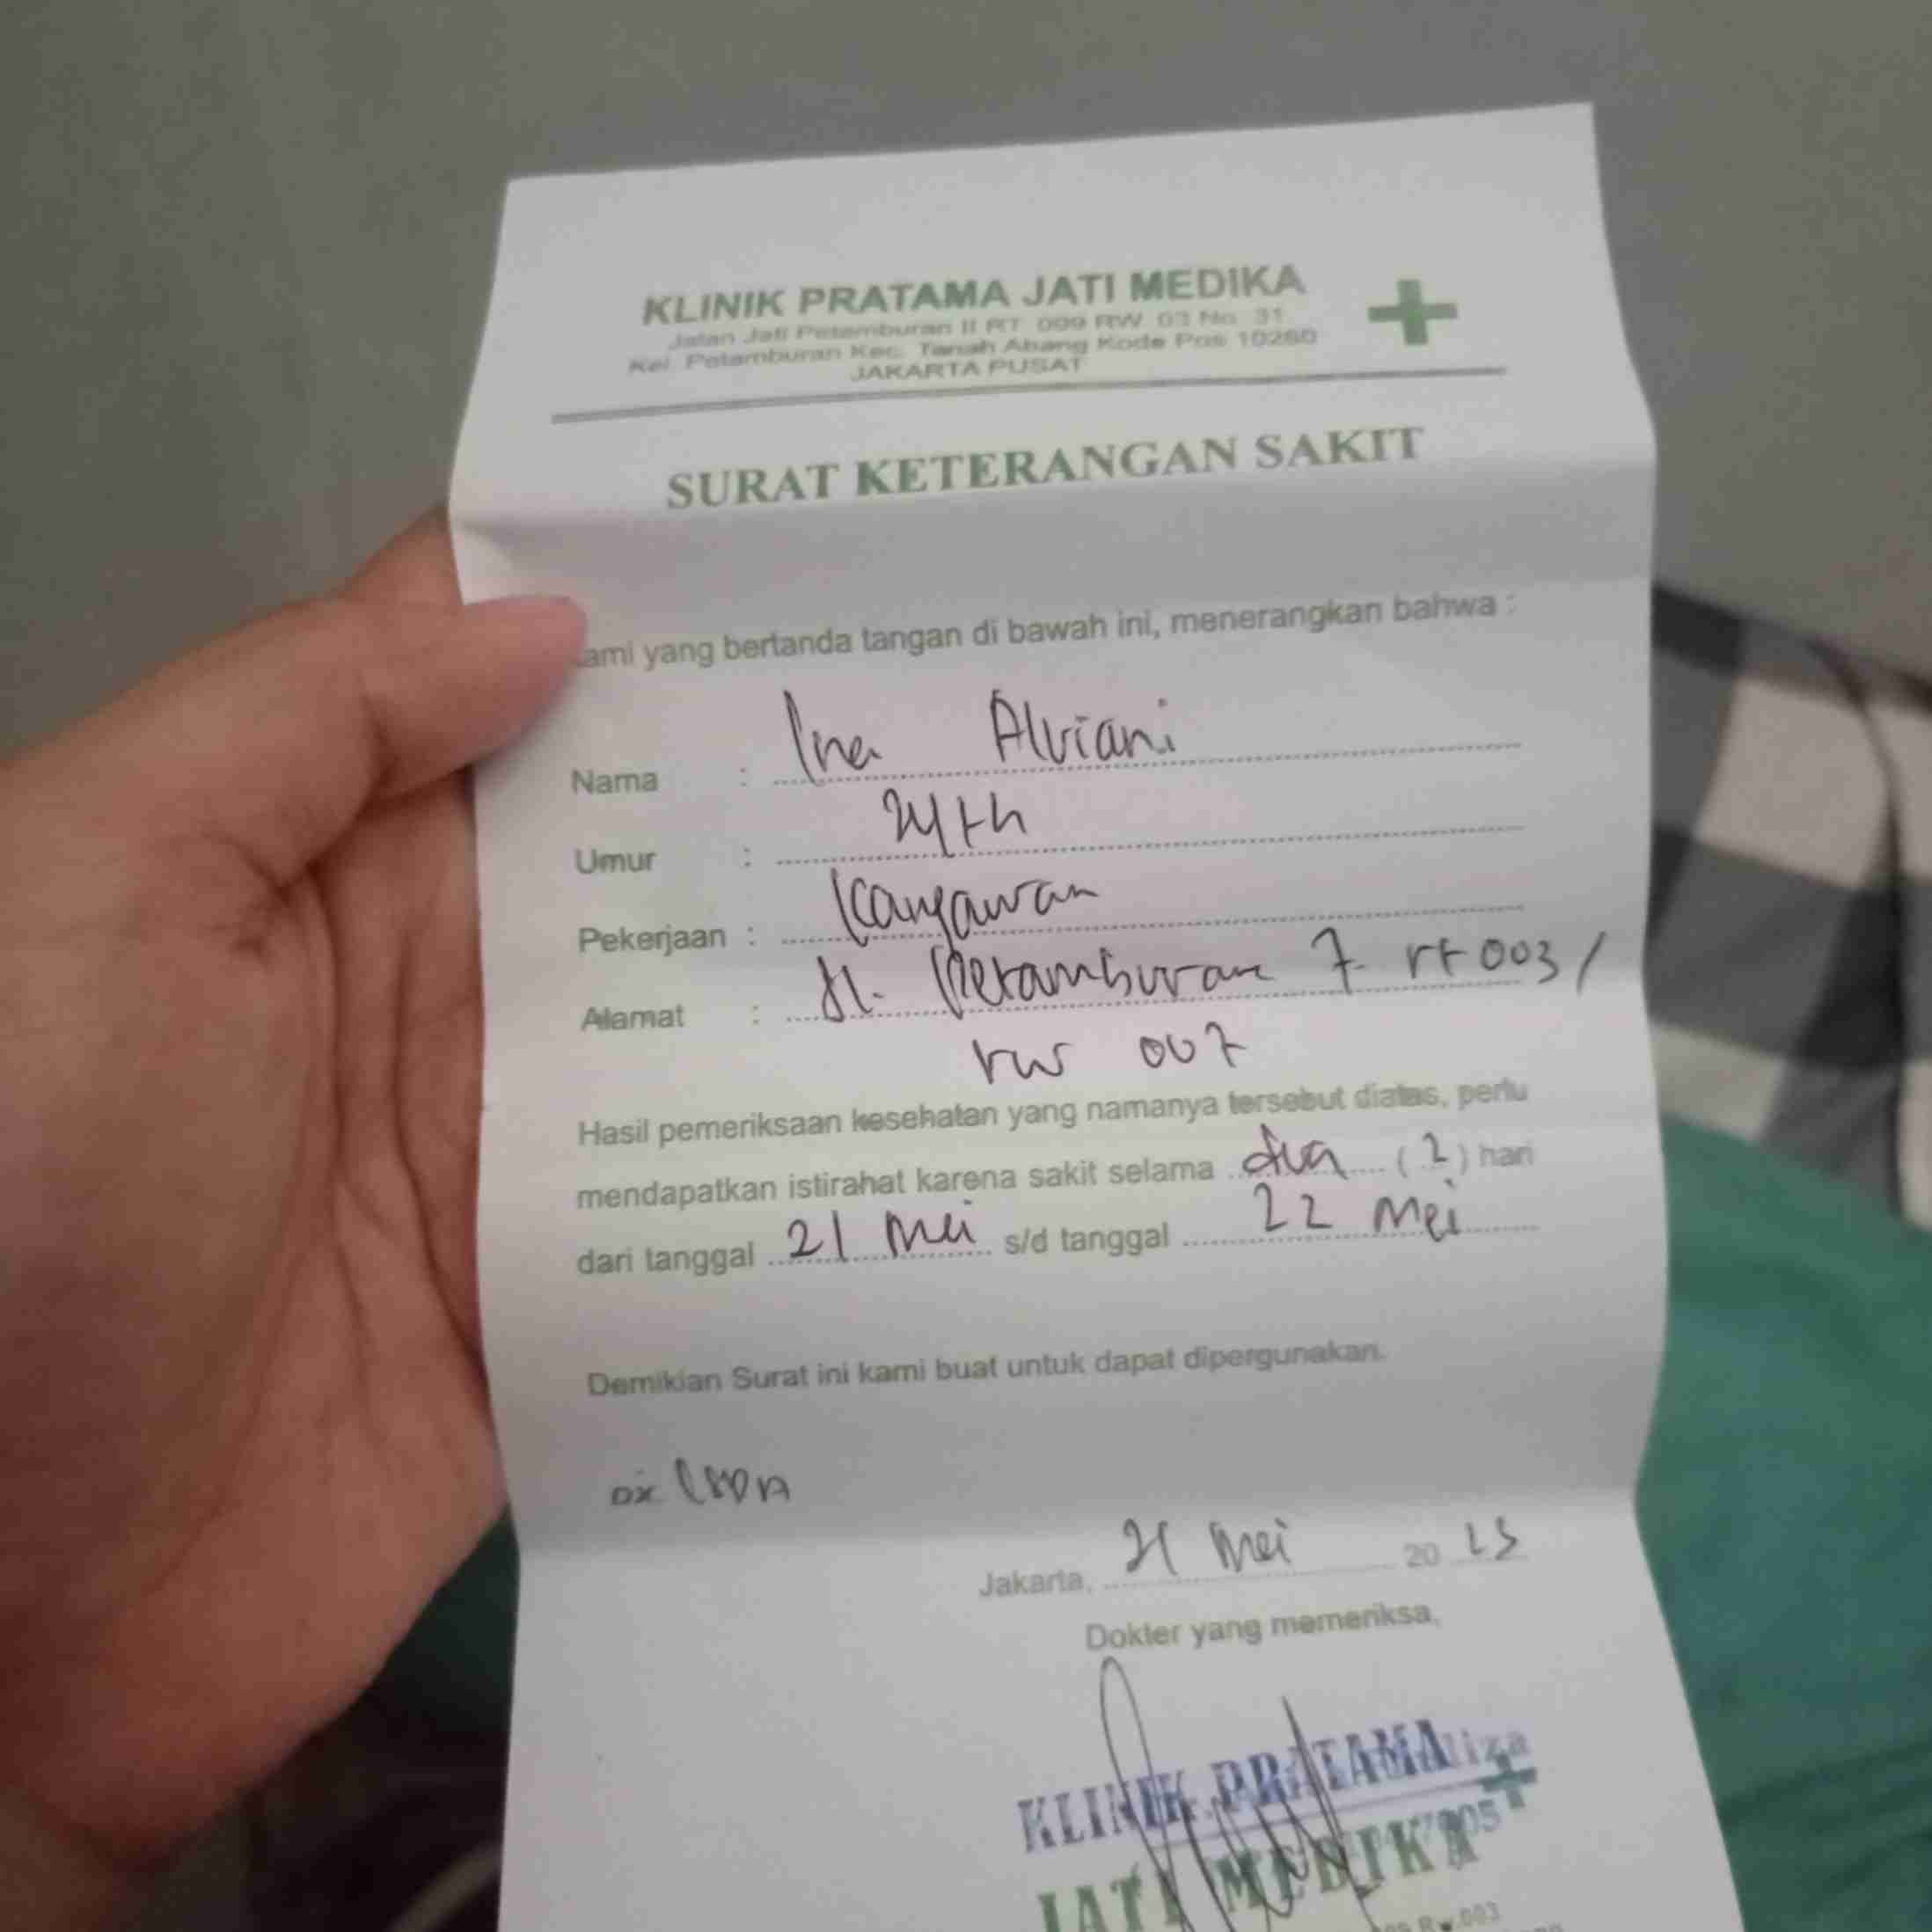 KLINIK PRATAMA JATI MEDIKA
Jalan Jati Petamburan II RT. 009 RW. 03 No. 31
Kel. Petamburan Kec. Tanah Abang Kode Pos 10260
JAKARTA PUSAT
SURAT KETERANGAN SAKIT
ami yang bertanda tangan di bawah ini, menerangkan bahwa :
Nama : Ina Alviani
Umur : 24 th
Pekerjaan : Karyawan
Alamat : Jl. Petamburan 7 rt 003 /
rw 007
Hasil pemeriksaan kesehatan yang namanya tersebut diatas, perlu
mendapatkan istirahat karena sakit selama dua ( 2 ) hari
dari tanggal 21 Mei s/d tanggal 22 Mei
Demikian Surat ini kami buat untuk dapat dipergunakan.
Dx
Jakarta, 21 Mei 20
Dokter yang memeriksa,
KLINIK PRATAMA liza
JATI MEDIKA
Rw.003